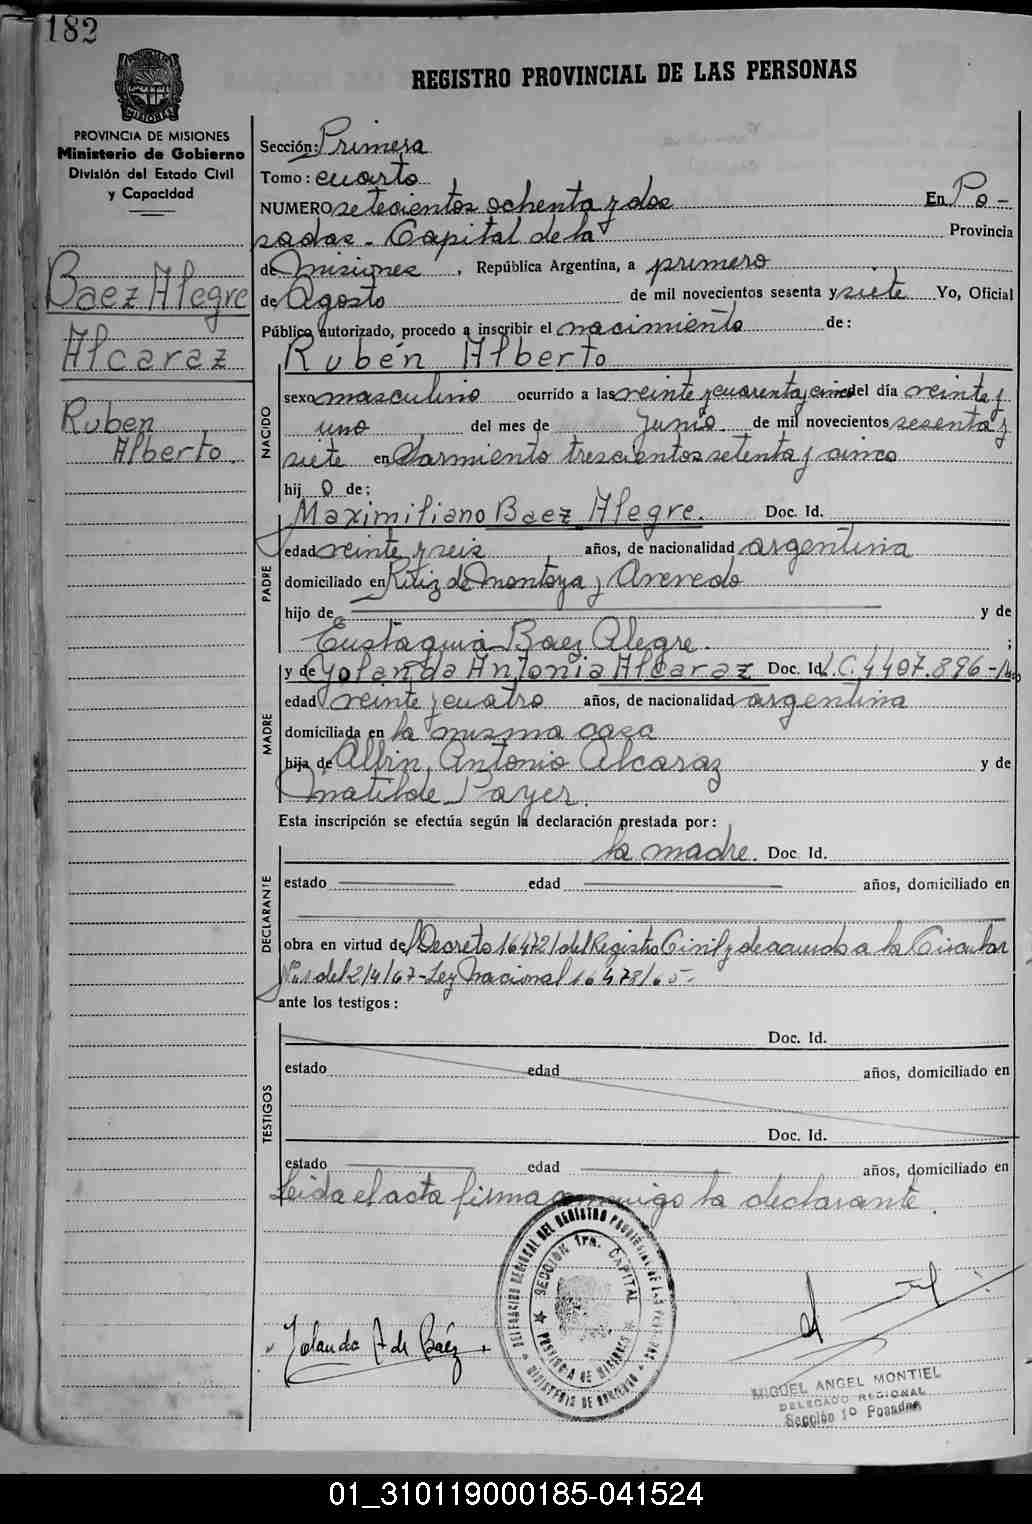 182
REGISTRO PROVINCIAL DE LAS PERSONAS
PROVINCIA DE MISIONES
Ministerio de Gobierno
División del Estado Civil
y Capacidad
Baez Alegre
Alcaraz
Ruben
Alberto.
Sección: Primera
Tomo: cuarto
NUMERO setecientos ochenta y dos En Po-
sadas - Capital de la Provincia
de Misiones, República Argentina, a primero
de Agosto de mil novecientos sesenta y siete Yo, Oficial
Público autorizado, procedo a inscribir el nacimiento de:
Rubén Alberto
NACIDO
sexo masculino ocurrido a las veinte y cuarenta y cinco del día veinte y
uno del mes de Junio de mil novecientos sesenta y
siete en Sarmiento trescientos setenta y cinco
hij o de:
Maximiliano Baez Alegre. Doc. Id.
PADRE
edad veinte y seis años, de nacionalidad argentina
domiciliado en Ruiz de Montoya y Acevedo
hijo de y de
Eustaquia Baez Alegre. ;
y de Yolanda Antonia Alcaraz Doc. Id. L.C. 4407.896-
MADRE
edad veinte y cuatro años, de nacionalidad argentina
domiciliada en la misma casa
hija de Albin Antonio Alcaraz y de
Matilde Payer.
Esta inscripción se efectúa según la declaración prestada por:
la madre. Doc. Id.
DECLARANTE
estado edad años, domiciliado en
obra en virtud de Decreto 16472/ del Registro Civil y de acuerdo a la Circular
Nº1 del 2/4/67-Ley Nacional 16478/65-
ante los testigos:
TESTIGOS
Doc. Id.
estado edad años, domiciliado en
Doc. Id.
estado edad años, domiciliado en
Leida el acta firma conmigo la declarante.
DELEGACION REGIONAL DEL REGISTRO PROVINCIAL DE LAS PERSONAS
SECCION 1ra. CAPITAL
PROVINCIA DE MISIONES
MINISTERIO DE GOBIERNO
Yolanda A de Baéz
MIGUEL ANGEL MONTIEL
DELEGADO REGIONAL
Sección 1º Posadas
01_310119000185-041524